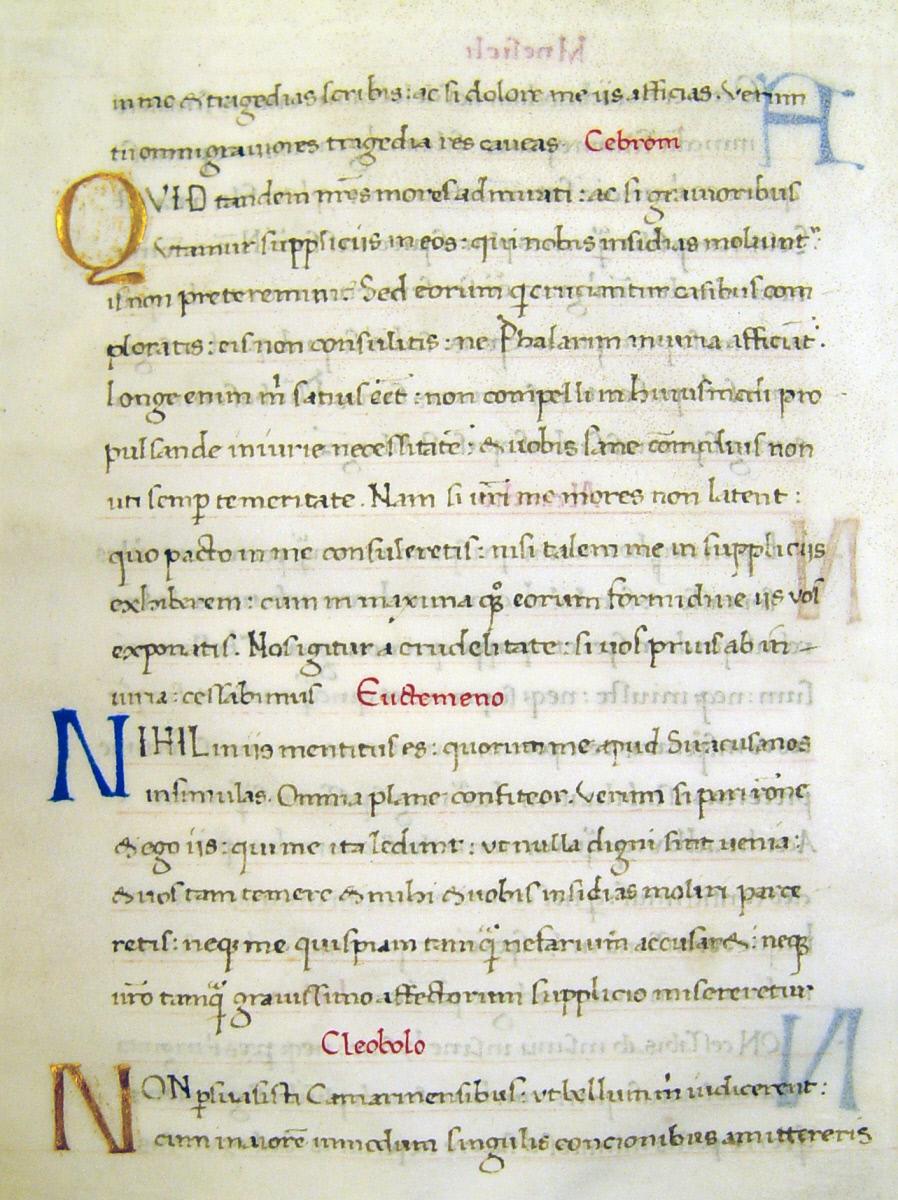 in me & tragedias scribis: ac si dolore me iis afficias. Verum
tu omni grauiores tragedia res caueas Cebroni
QVID tandem mr̄es mores admirati: ac si grauioribus
vtamur suppliciis in eos: qui nobis insidias moliunt᷑
ii non pretereunt. Sed eorum q̇ cruciantur casibus com
ploratis: eis non consulitis: ne Phalarim iniuria afficiāt.
longe enim m̄ satius eēt: non compelli in huiusmodi pro
pulsande iniurie necessitatē: & uobis sane cōmodius non
uti semꝑ temeritate. Nam si ur̄i me mores non latent:
quo pacto in me consuleretis: nisi talem me in suppliciis
exhiberem: cum in maxima qȝ eorum formidine iis vos
exponatis. Nos igitur à crudelitate: si uos prius ab in
iuria: cessabimus Euctemeno
NIHIL in iis mentitus es: quorum me apud Siracusanos
insimulas. Omnia plane confiteor. Verum si pari rōne
& ego iis: qui me ita ledunt: ut nulla digni sint uenia:
& uos tam temere & mihi & uobis insidias moliri parce
retis: neqȝ me quispiam tamq̄ nefarium accusar&: neqȝ
ur̄o tamq̄ grauissimo affectorum supplicio misereretur
Cleobolo
NON ꝑsuasisti Camarinensibus: vt bellum m̄ indicerent:
cum in singulis concionibus amitteretis